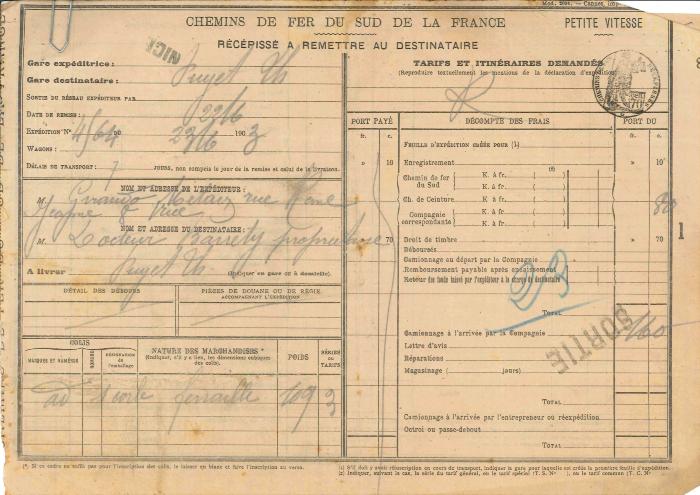 CHEMINS DE FER DU SUD DE LA FRANCE
PETITE VITESSE
RÉCÉPISSÉ A REMETTRE AU DESTINATAIRE
Gare expéditrice :
NICE
Gare destinataire : Puget Th
SORTIE DU RÉSEAU EXPÉDITEUR PAR
DATE DE REMISE : 22/6
EXPÉDITION No 4/64 DU 22/6 1903
WAGONS :
DÉLAIS DE TRANSPORT : 7 JOURS, non compris le jour de la remise et celui de la livraison.
NOM ET ADRESSE DE L'EXPÉDITEUR :
M.
NOM ET ADRESSE DU DESTINATAIRE :
M. Docteur Barrety propriétaire
A livrer Puget Th. (Indiquer en gare ou à domicile)
DÉTAIL DES DÉBOURS
PIÈCES DE DOUANE OU DE RÉGIE
ACCOMPAGNANT L'EXPÉDITION
COLIS
MARQUES ET NUMÉROS
NOMBRE
DÉSIGNATION de l'emballage
NATURE DES MARCHANDISES *
(Indiquer, s'il y a lieu, les dimensions cubiques des colis.)
POIDS
SÉRIES OU TARIFS
ad
ferraille 109 3
(*) Si ce cadre ne suffit pas pour l'inscription des colis, le laisser en blanc et faire l'inscription au verso.
TARIFS ET ITINÉRAIRES DEMANDÉS
(Reproduire textuellement les mentions de la déclaration d'expédition)
PORT PAYÉ
DÉCOMPTE DES FRAIS
PORT DU
fr. c.
fr. c.
FEUILLE D'EXPÉDITION CRÉÉE POUR (1)
» 10 Enregistrement » 10
(2)
Chemin de fer du Sud
K. à fr. ( )
K. à fr. ( )
Ch. de Ceinture K. à fr. ( )
Compagnie correspondante
K. à fr. ( )
K. à fr. ( )
80
» 70 Droit de timbre » 70
Déboursés
Camionnage au départ par la Compagnie
Remboursement payable après encaissement
Retour des fonds laissé par l'expéditeur à la charge du destinataire
TOTAL
160
SORTIE
Camionnage à l'arrivée par la Compagnie
Lettre d'avis
Réparations
Magasinage ( jours)
TOTAL
Camionnage à l'arrivée par l'entrepreneur ou réexpédition
Octroi ou passe-debout
TOTAL
(1) S'il doit y avoir réinscription en cours de transport, indiquer la gare pour laquelle est créée la première feuille d'expédition.
(2) Indiquer, suivant le cas, la série du tarif général, ou le tarif spécial (T. S. No ), ou le tarif commun (T. C. No